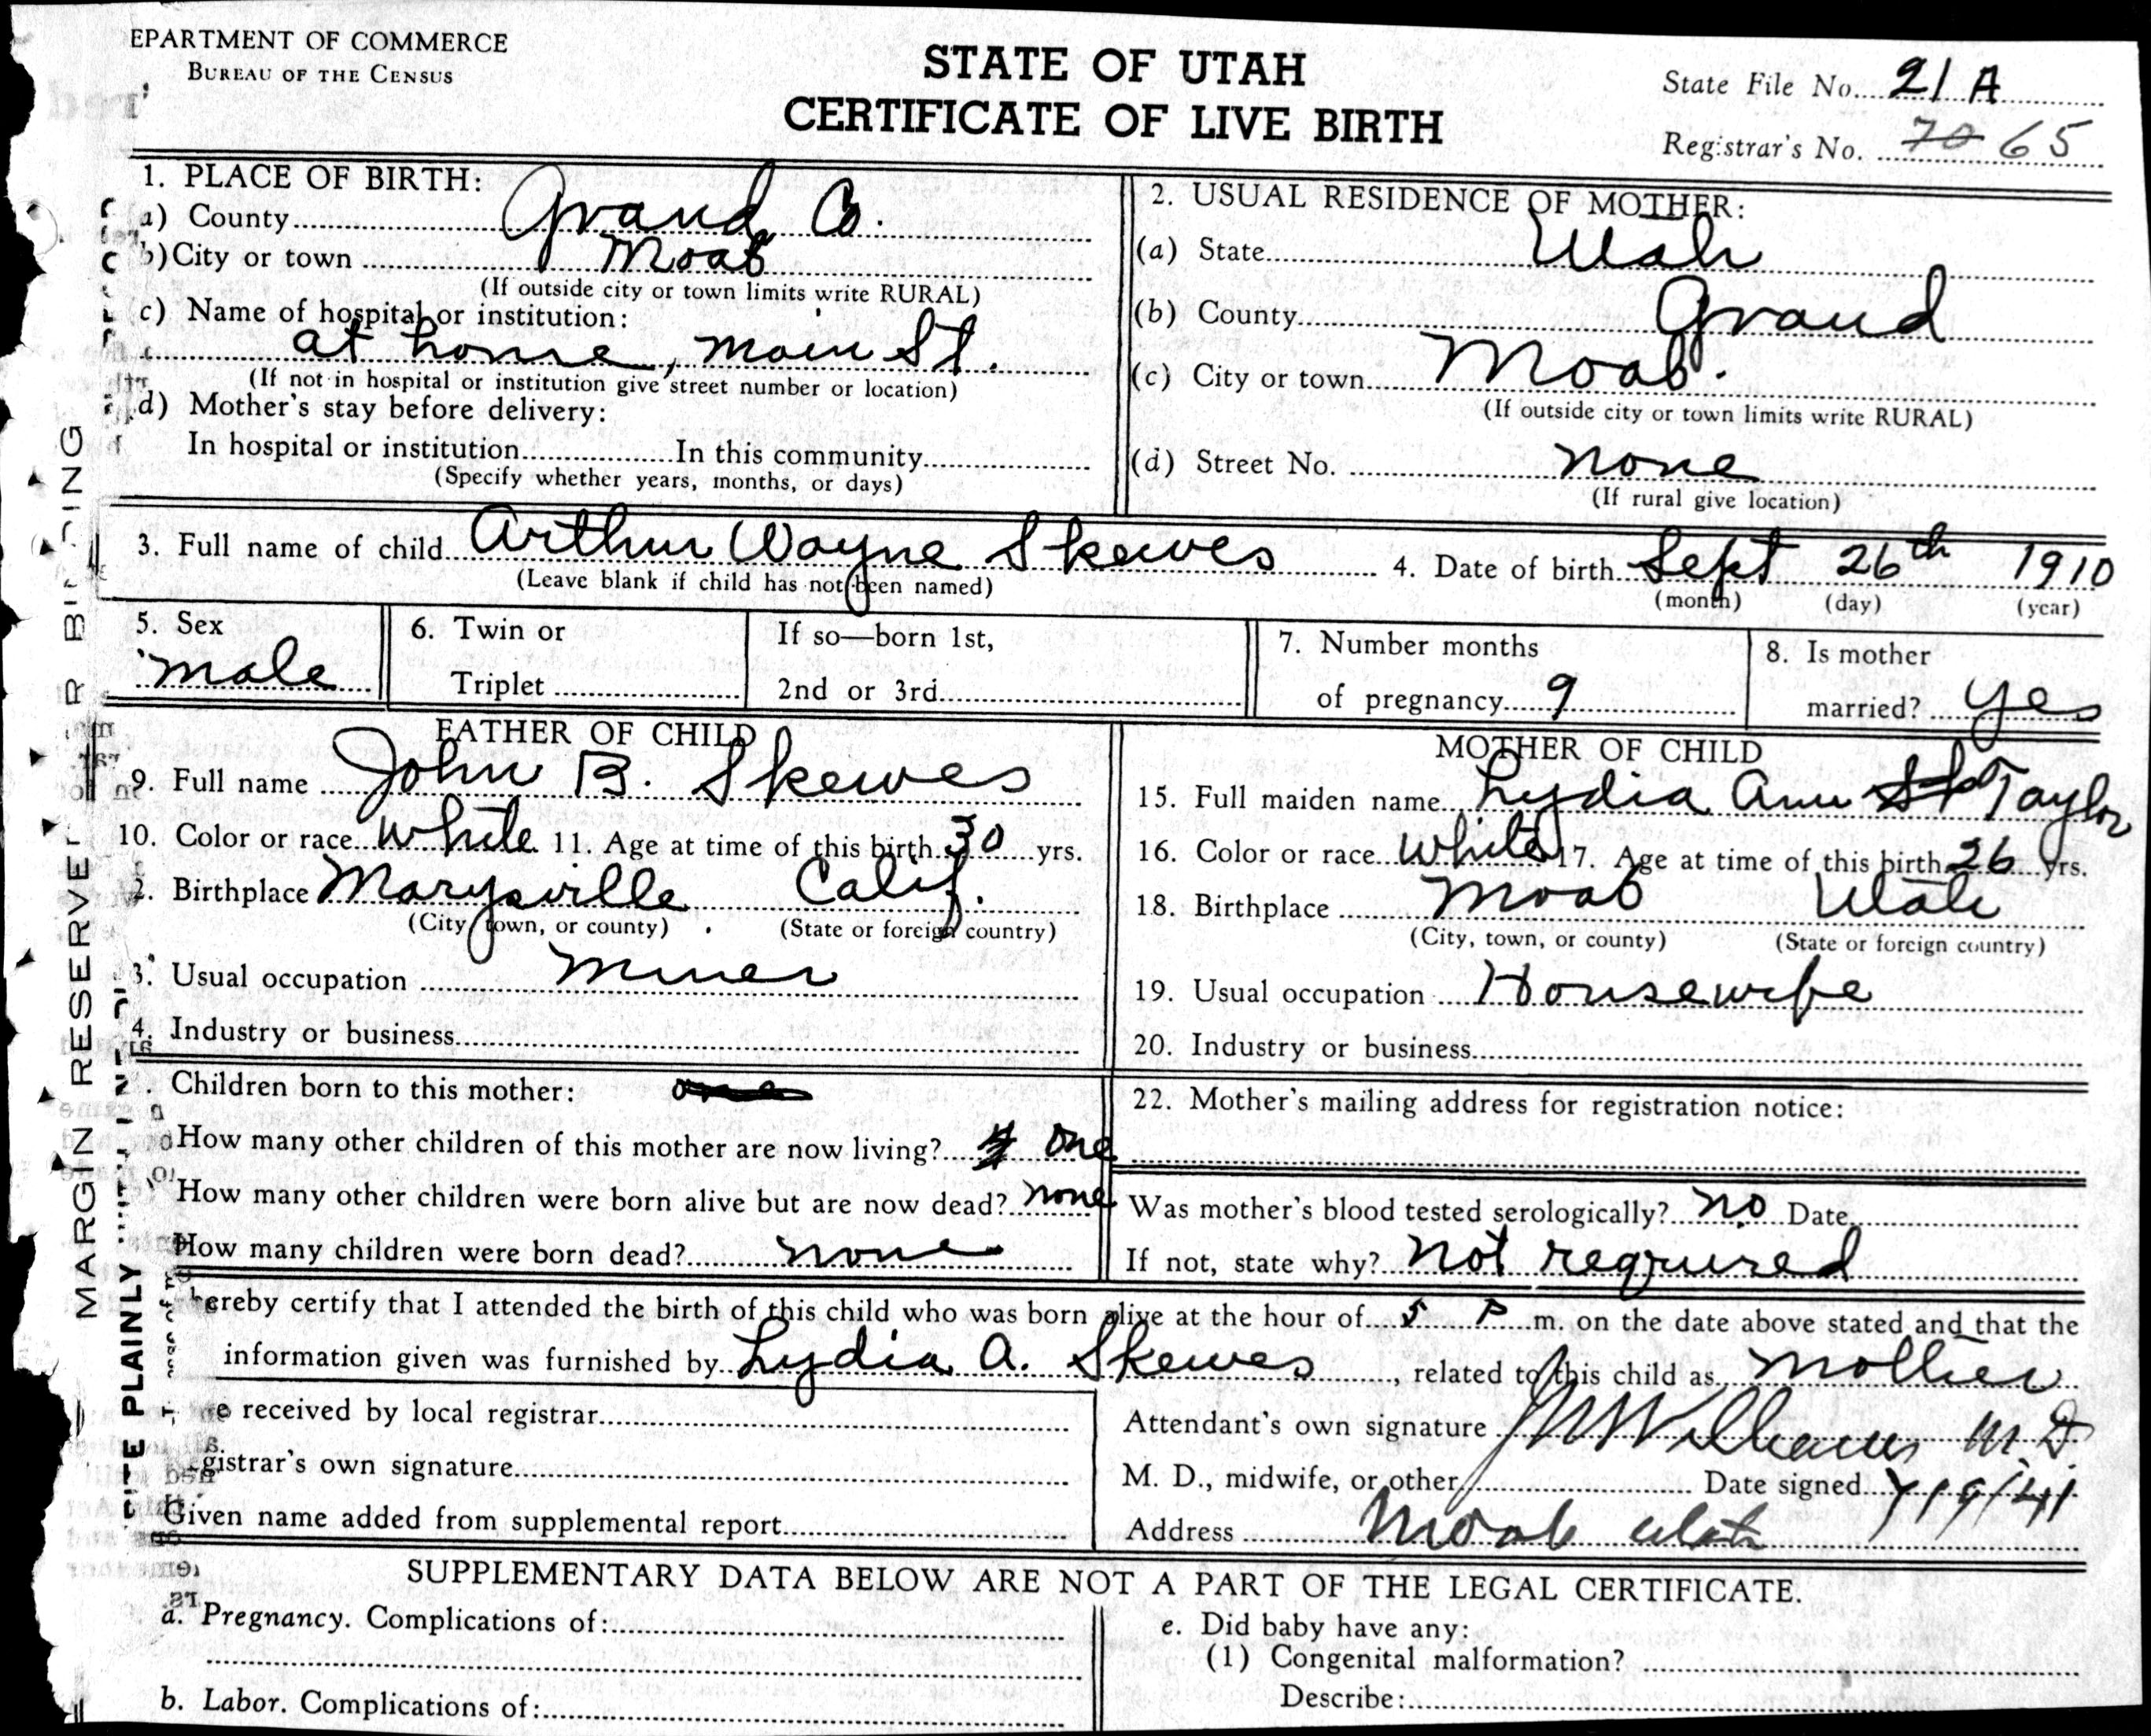 EPARTMENT OF COMMERCE
BUREAU OF THE CENSUS
STATE OF UTAH
CERTIFICATE OF LIVE BIRTH
State File No. 21 A
Registrar's No. 70 65
1. PLACE OF BIRTH:
a) County Grand Co.
b) City or town Moab
(If outside city or town limits write RURAL)
c) Name of hospital or institution:
at home, main St.
(If not in hospital or institution give street number or location)
d) Mother's stay before delivery:
In hospital or institution In this community
(Specify whether years, months, or days)
2. USUAL RESIDENCE OF MOTHER:
(a) State Utah
(b) County Grand
(c) City or town Moab.
(If outside city or town limits write RURAL)
(d) Street No. none
(If rural give location)
3. Full name of child Arthur Wayne Skewes 4. Date of birth Sept 26th 1910
(Leave blank if child has not been named) (month) (day) (year)
5. Sex male
6. Twin or
Triplet
If so—born 1st,
2nd or 3rd
7. Number months
of pregnancy 9
8. Is mother
married? yes
FATHER OF CHILD
9. Full name John B. Skewes
10. Color or race White 11. Age at time of this birth 30 yrs.
2. Birthplace Marysville Calif.
(City, town, or county) (State or foreign country)
3. Usual occupation Miner
4. Industry or business
MOTHER OF CHILD
15. Full maiden name Lydia Ann Taylor
16. Color or race White 17. Age at time of this birth 26 yrs.
18. Birthplace Moab Utah
(City, town, or county) (State or foreign country)
19. Usual occupation Housewife
20. Industry or business
Children born to this mother: one
How many other children of this mother are now living? one
How many other children were born alive but are now dead? none
How many children were born dead? none
22. Mother's mailing address for registration notice:
Was mother's blood tested serologically? no Date
If not, state why? not required
hereby certify that I attended the birth of this child who was born alive at the hour of 5 P m. on the date above stated and that the
information given was furnished by Lydia A. Skewes, related to this child as mother
e received by local registrar
gistrar's own signature
Given name added from supplemental report
Attendant's own signature Williams M.D.
M. D., midwife, or other Date signed
Address Moab Utah
SUPPLEMENTARY DATA BELOW ARE NOT A PART OF THE LEGAL CERTIFICATE.
a. Pregnancy. Complications of:
b. Labor. Complications of:
e. Did baby have any:
(1) Congenital malformation?
Describe:
MARGIN RESERVE R BI DING
ITE PLAINLY